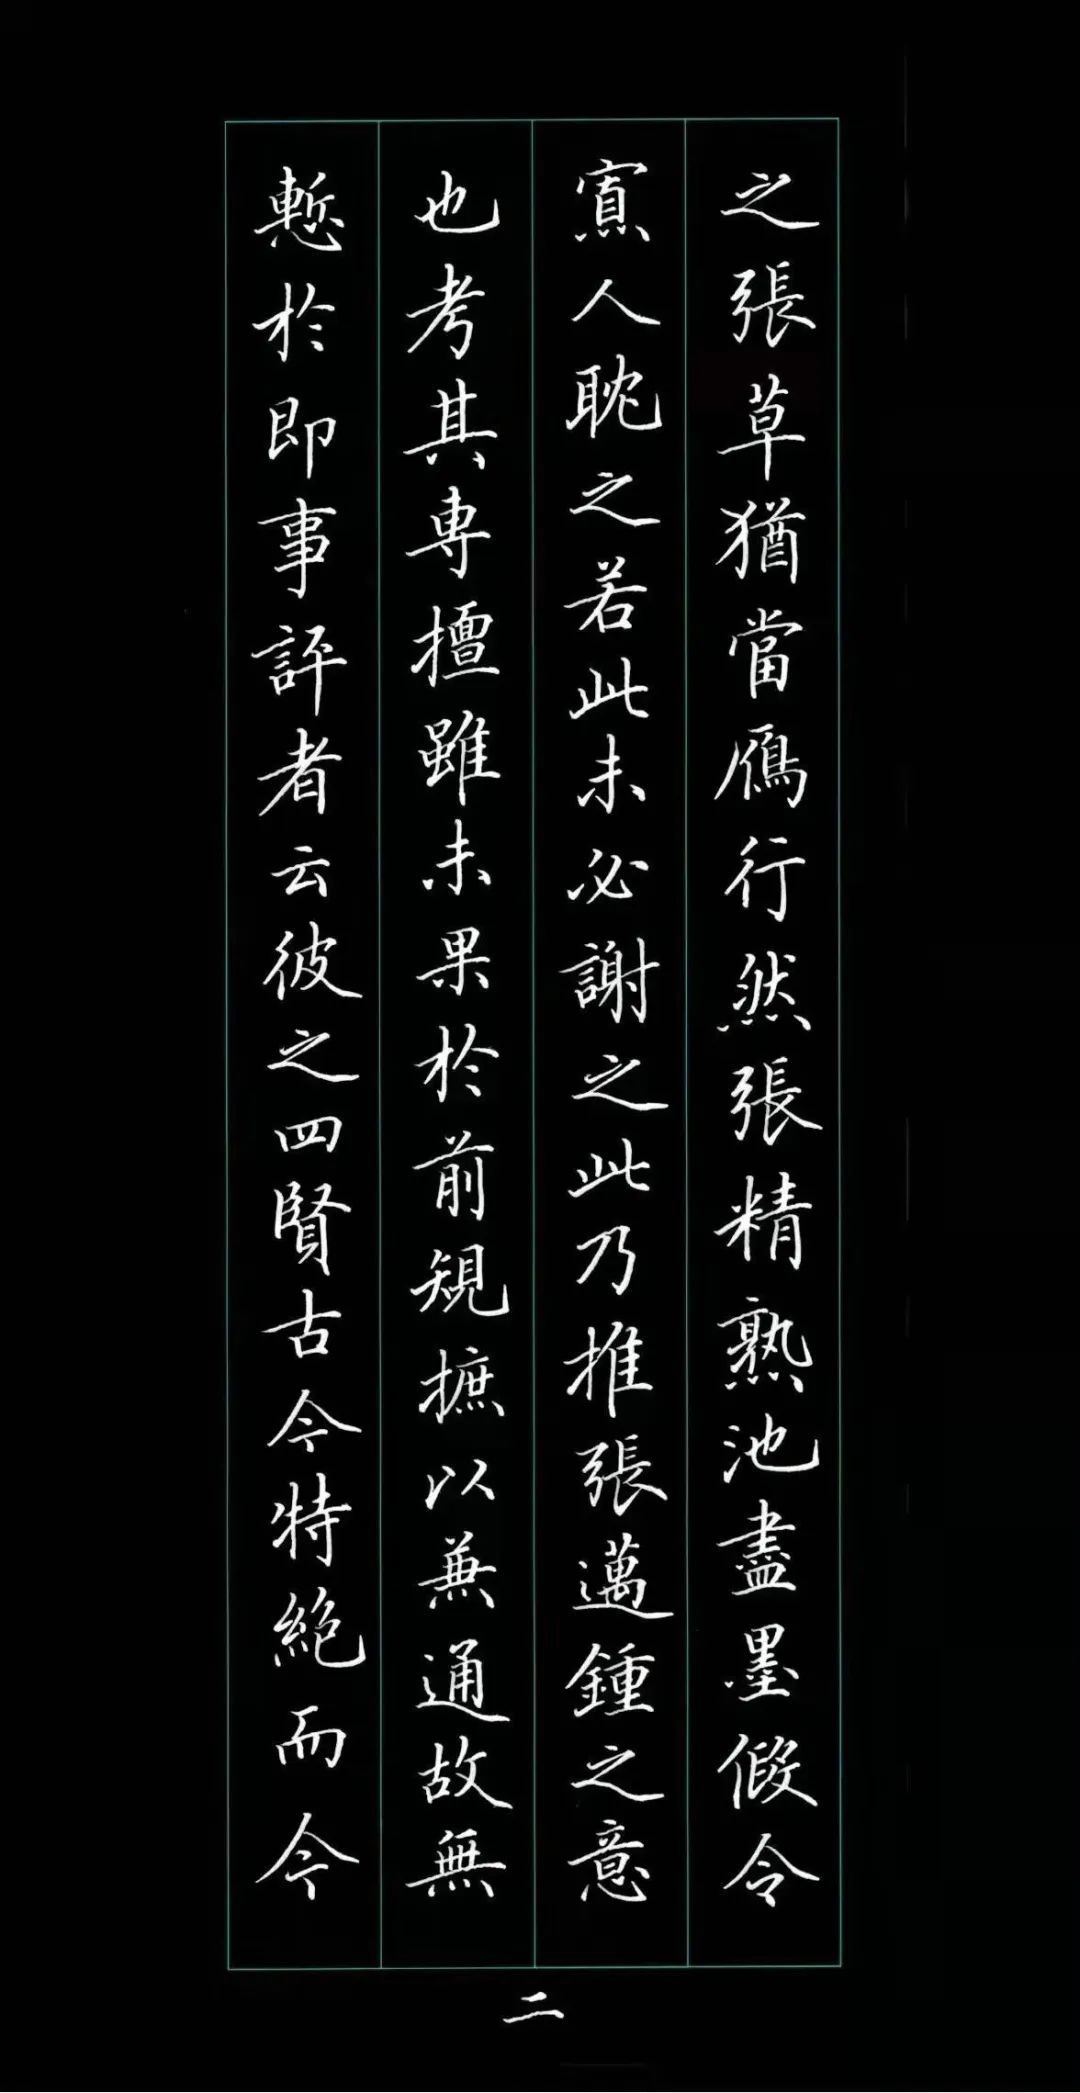 之張草猶當鴈行然張精熟池盡墨假令
寡人耽之若此未必謝之此乃推張邁鍾之意
也考其專擅雖未果於前規摭以兼通故無
慙於即事評者云彼之四賢古今特絕而今
二